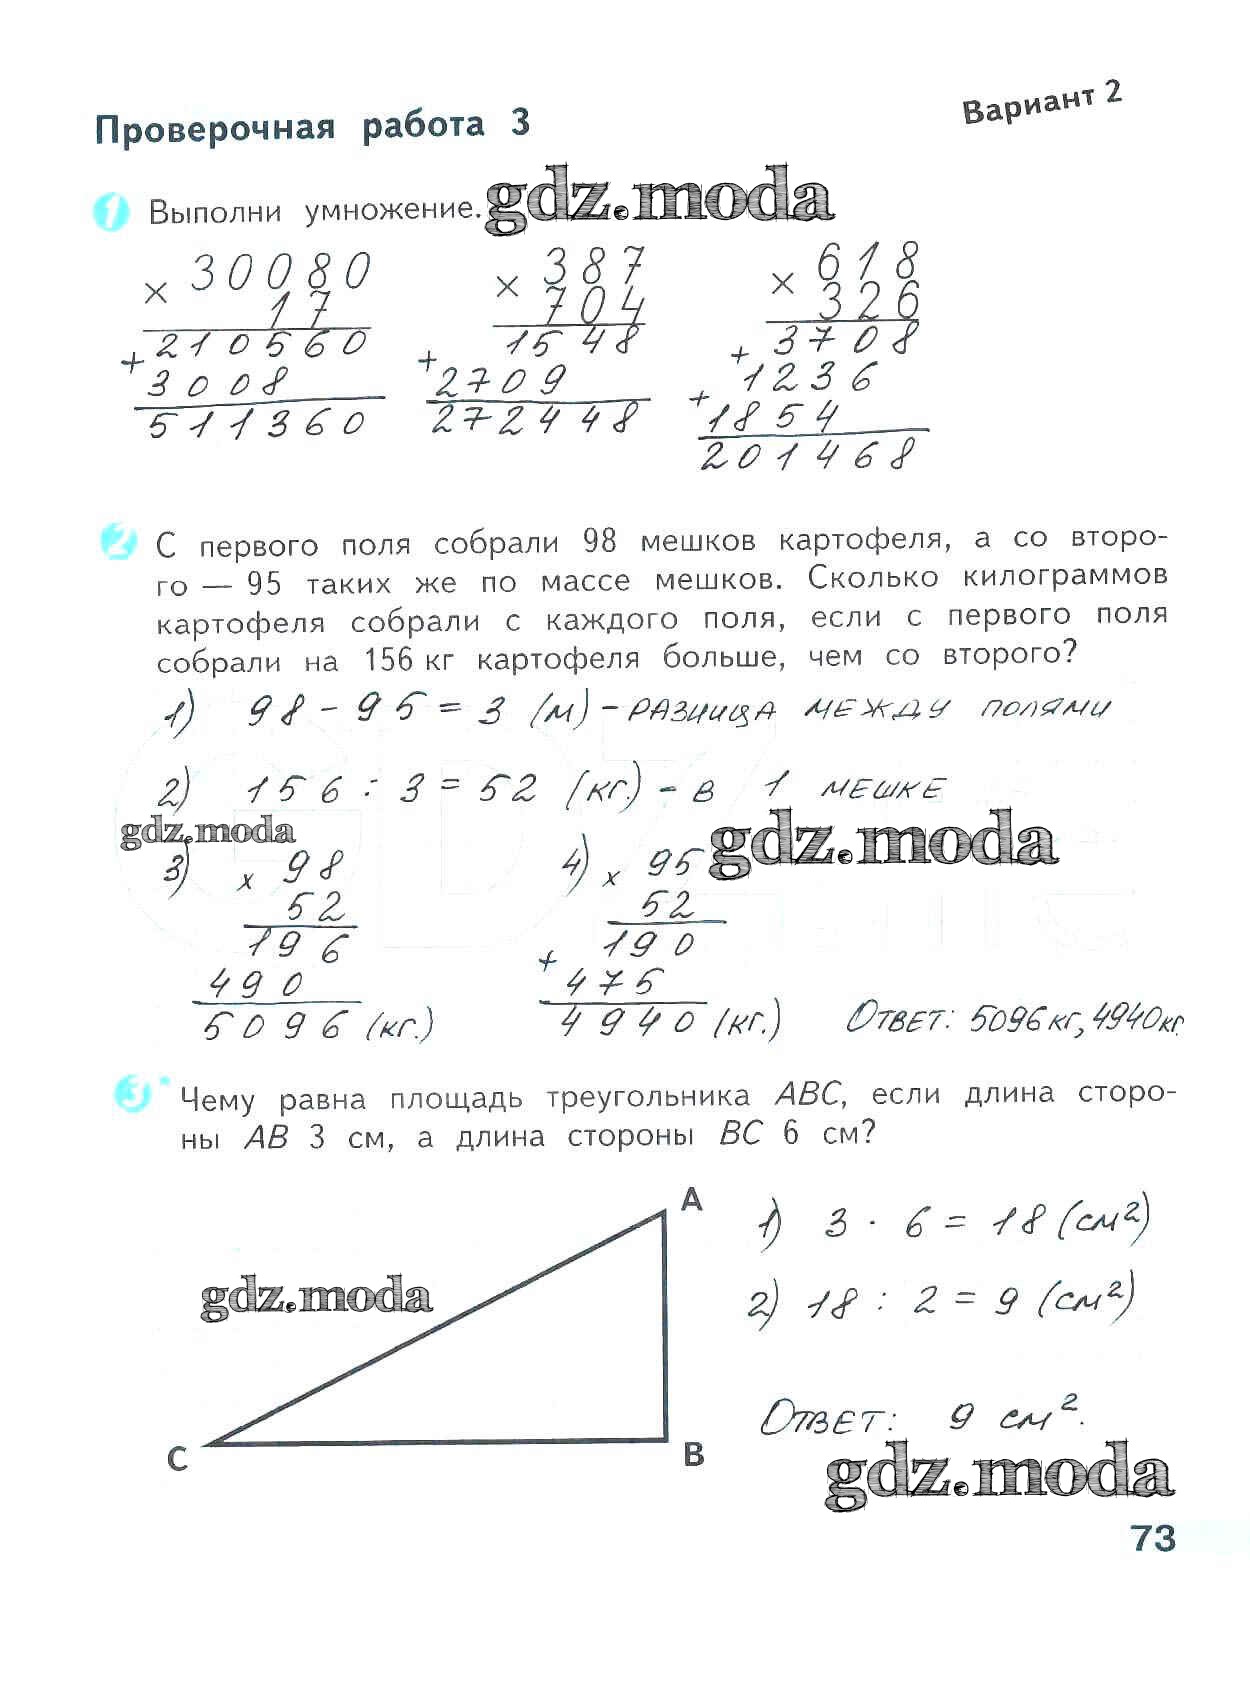 Проверочная работа 3
Вариант 2
1 Выполни умножение.
gdz.moda
× 30080
17
+ 210560
3008
511360
× 387
704
+ 1548
2709
272448
× 618
326
+ 3708
+ 1236
1854
201468
2 С первого поля собрали 98 мешков картофеля, а со второ-
го — 95 таких же по массе мешков. Сколько килограммов
картофеля собрали с каждого поля, если с первого поля
собрали на 156 кг картофеля больше, чем со второго?
1) 98 - 95 = 3 (м) - РАЗНИЦА МЕЖДУ ПОЛЯМИ
2) 156 : 3 = 52 (кг.) - В 1 МЕШКЕ
gdz.moda
gdz.moda
3) × 98
52
196
490
5096 (кг.)
4) × 95
52
+ 190
475
4940 (кг.)
ОТВЕТ: 5096 кг, 4940 кг.
3* Чему равна площадь треугольника ABC, если длина сторо-
ны AB 3 см, а длина стороны BC 6 см?
A
C
B
gdz.moda
1) 3 · 6 = 18 (см²)
2) 18 : 2 = 9 (см²)
ОТВЕТ: 9 см².
gdz.moda
73